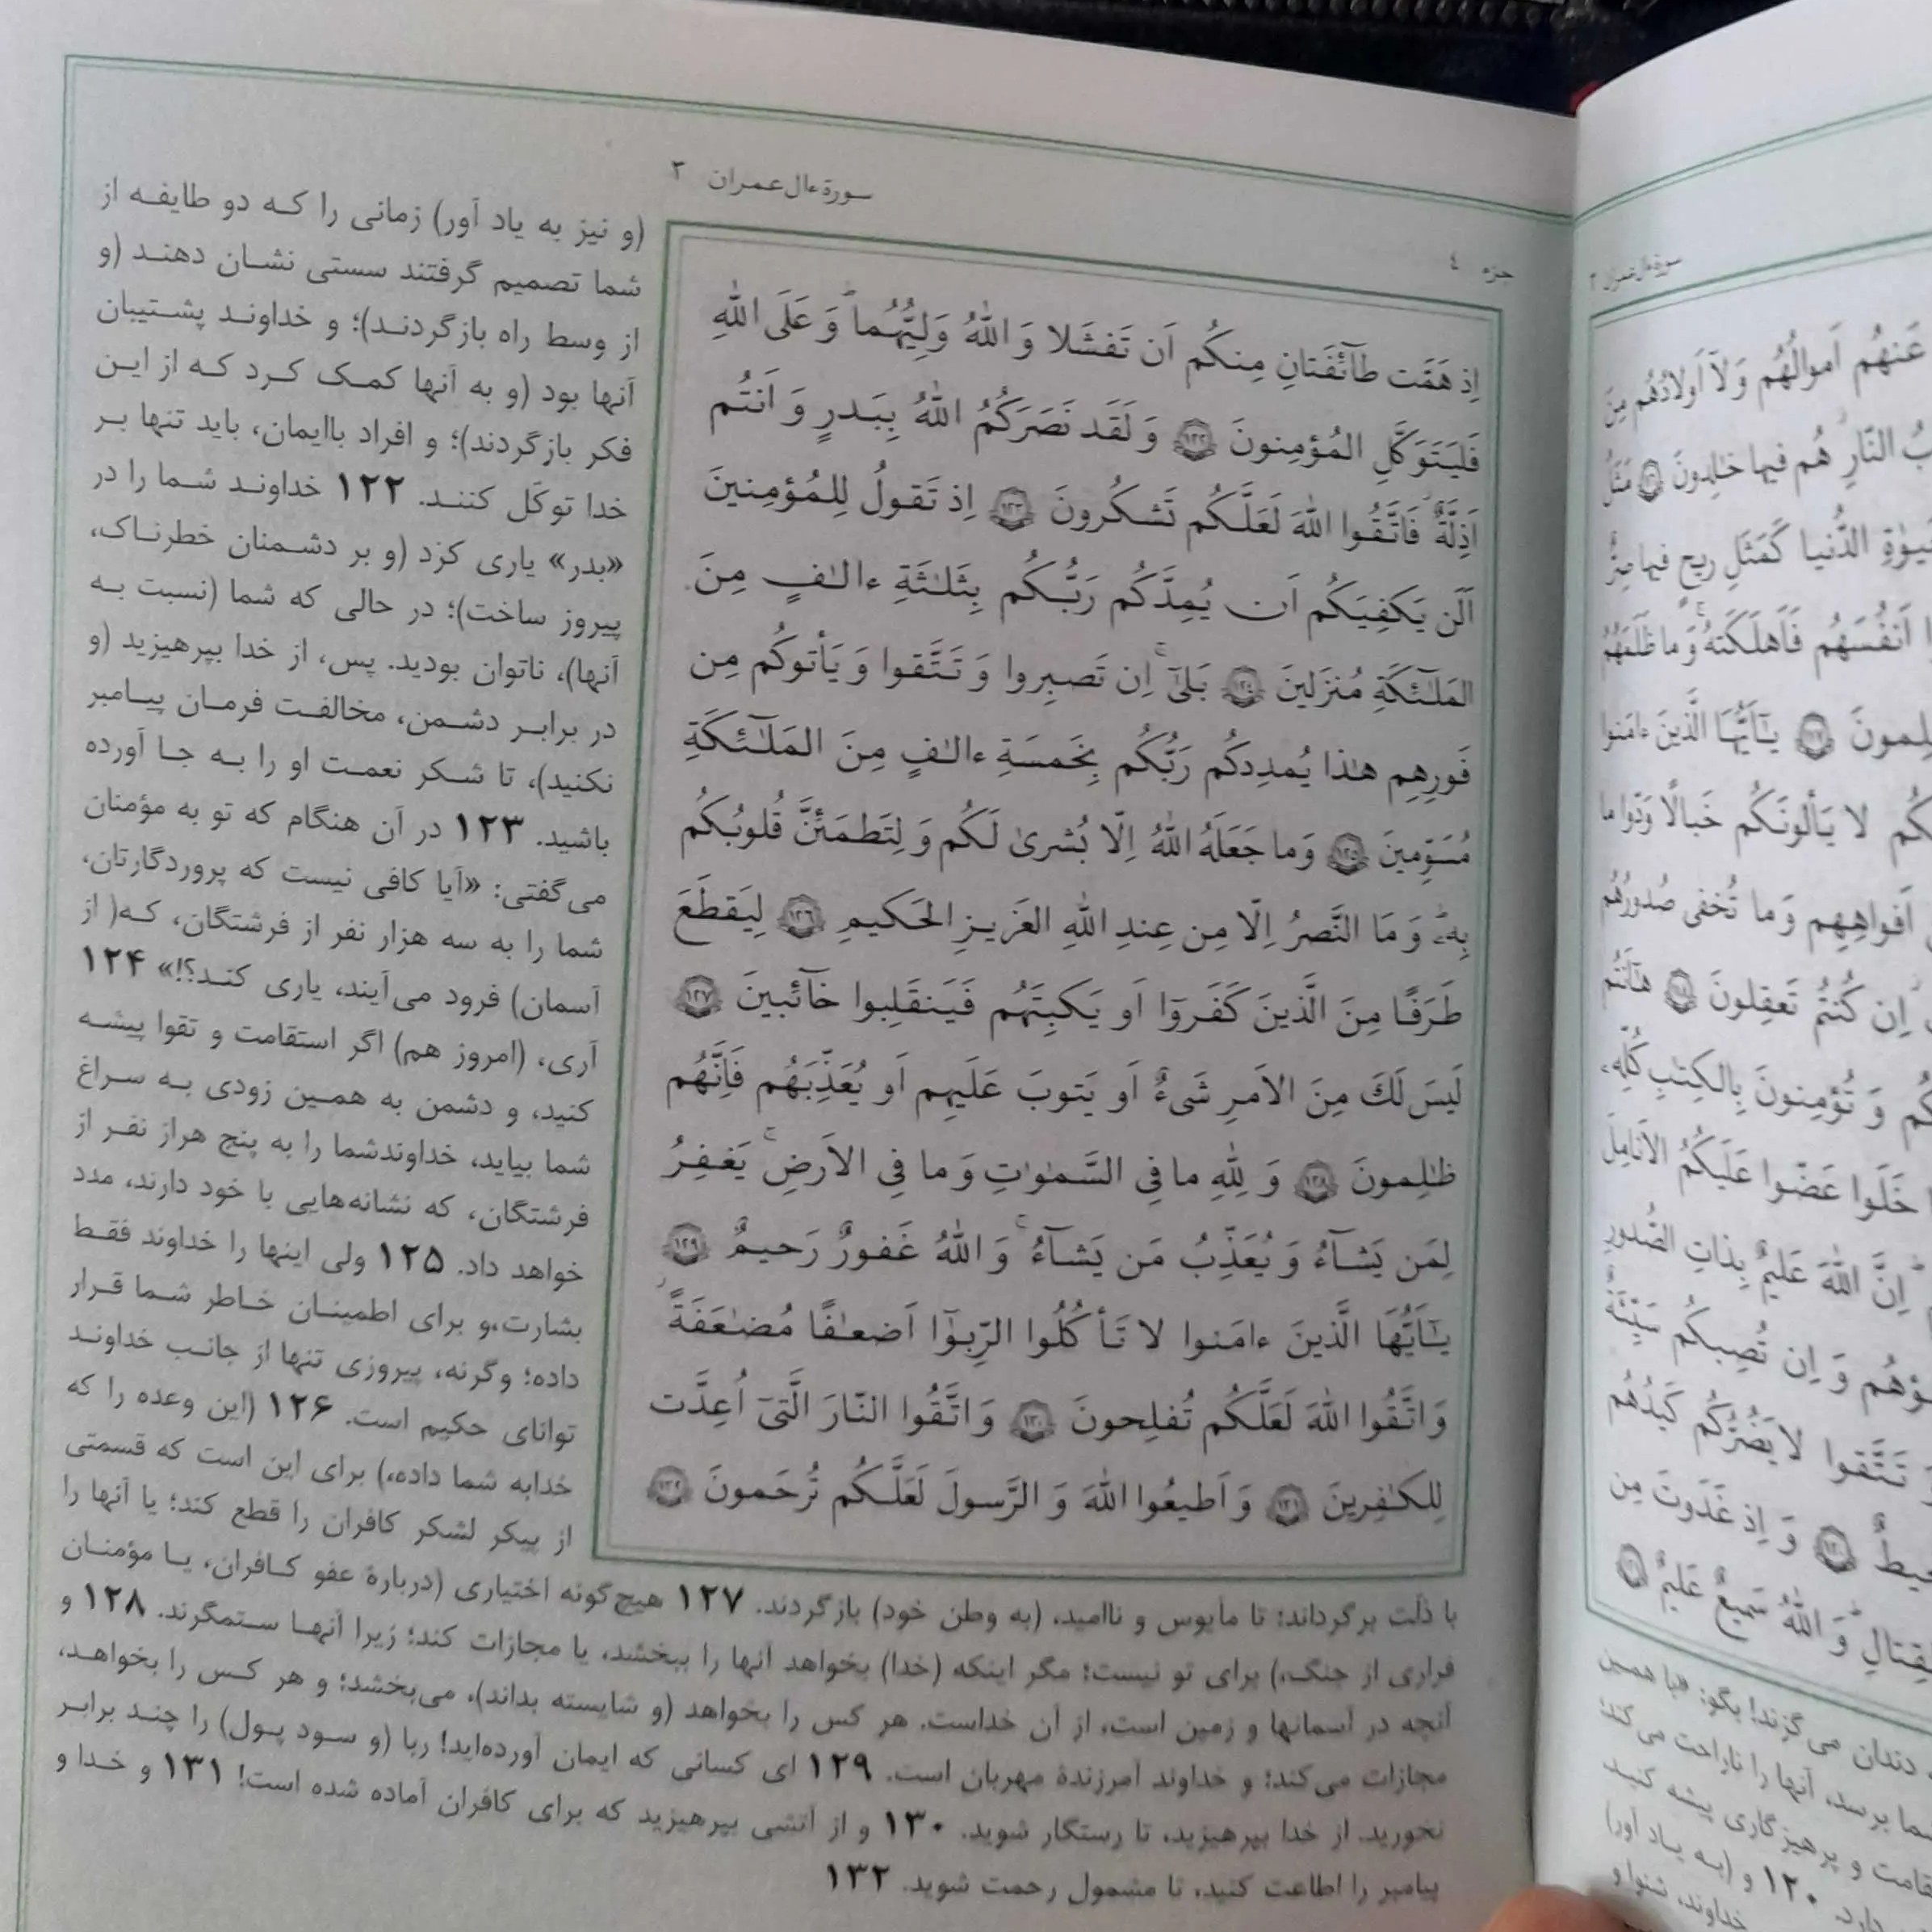 سورة ءال عمران ٣
جزء ٤
اِذ هَمَّت طآئِفَتانِ مِنكُم اَن تَفشَلا وَ اللّٰهُ وَلِيُّهُما وَ عَلَى اللّٰهِ
فَليَتَوَكَّلِ المُؤمِنونَ ١٢٢ وَ لَقَد نَصَرَكُمُ اللّٰهُ بِبَدرٍ وَ اَنتُم
اَذِلَّةٌ فَاتَّقُوا اللّٰهَ لَعَلَّكُم تَشكُرونَ ١٢٣ اِذ تَقولُ لِلمُؤمِنينَ
اَلَن يَكفِيَكُم اَن يُمِدَّكُم رَبُّكُم بِثَلٰثَةِ ءالٰفٍ مِنَ
المَلٰٓئِكَةِ مُنزَلينَ ١٢٤ بَلىٰٓ اِن تَصبِروا وَ تَتَّقوا وَ يَأتوكُم مِن
فَورِهِم هٰذا يُمدِدكُم رَبُّكُم بِخَمسَةِ ءالٰفٍ مِنَ المَلٰٓئِكَةِ
مُسَوِّمينَ ١٢٥ وَ ما جَعَلَهُ اللّٰهُ اِلّا بُشرىٰ لَكُم وَ لِتَطمَئِنَّ قُلوبُكُم
بِهٖ وَ مَا النَّصرُ اِلّا مِن عِندِ اللّٰهِ العَزيزِ الحَكيمِ ١٢٦ لِيَقطَعَ
طَرَفًا مِنَ الَّذينَ كَفَروٓا اَو يَكبِتَهُم فَيَنقَلِبوا خآئِبينَ ١٢٧
لَيسَ لَكَ مِنَ الاَمرِ شَىءٌ اَو يَتوبَ عَلَيهِم اَو يُعَذِّبَهُم فَاِنَّهُم
ظٰلِمونَ ١٢٨ وَ لِلّٰهِ ما فِى السَّمٰوٰتِ وَ ما فِى الاَرضِ يَغفِرُ
لِمَن يَشآءُ وَ يُعَذِّبُ مَن يَشآءُ وَ اللّٰهُ غَفورٌ رَحيمٌ ١٢٩
يٰٓاَيُّهَا الَّذينَ ءامَنوا لا تَأكُلُوا الرِّبوٰٓا اَضعٰفًا مُضٰعَفَةً
وَ اتَّقُوا اللّٰهَ لَعَلَّكُم تُفلِحونَ ١٣٠ وَ اتَّقُوا النّارَ الَّتىٓ اُعِدَّت
لِلكٰفِرينَ ١٣١ وَ اَطيعُوا اللّٰهَ وَ الرَّسولَ لَعَلَّكُم تُرحَمونَ ١٣٢
(و نیز به یاد آور) زمانی را که دو طایفه از
شما تصمیم گرفتند سستی نشان دهند (و
از وسط راه بازگردند)؛ و خداوند پشتیبان
آنها بود (و به آنها کمک کرد که از این
فکر بازگردند)؛ و افراد باایمان، باید تنها بر
خدا توکّل کنند. ۱۲۲ خداوند شما را در
«بدر» یاری کرد (و بر دشمنان خطرناک،
پیروز ساخت)؛ در حالی که شما (نسبت به
آنها)، ناتوان بودید. پس، از خدا بپرهیزید (و
در برابر دشمن، مخالفت فرمان پیامبر
نکنید)، تا شکر نعمت او را به جا آورده
باشید. ۱۲۳ در آن هنگام که تو به مؤمنان
می‌گفتی: «آیا کافی نیست که پروردگارتان،
شما را به سه هزار نفر از فرشتگان، که( از
آسمان) فرود می‌آیند، یاری کند؟!» ۱۲۴
آری، (امروز هم) اگر استقامت و تقوا پیشه
کنید، و دشمن به همین زودی به سراغ
شما بیاید، خداوندشما را به پنج هراز نفر از
فرشتگان، که نشانه‌هایی با خود دارند، مدد
خواهد داد. ۱۲۵ ولی اینها را خداوند فقط
بشارت،و برای اطمینان خاطر شما قرار
داده؛ وگرنه، پیروزی تنها از جانب خداوند
توانای حکیم است. ۱۲۶ (این وعده را که
خدابه شما داده،) برای این است که قسمتی
از پیکر لشکر کافران را قطع کند؛ یا آنها را
با ذلّت برگرداند؛ تا مأیوس و ناامید، (به وطن خود) بازگردند. ۱۲۷ هیچ‌گونه اختیاری (دربارهٔ عفو کافران، یا مؤمنان
فراری از جنگ،) برای تو نیست؛ مگر اینکه (خدا) بخواهد آنها را ببخشد، یا مجازات کند؛ زیرا آنها ستمگرند. ۱۲۸ و
آنچه در آسمانها و زمین است، از آن خداست. هر کس را بخواهد (و شایسته بداند)، می‌بخشد؛ و هر کس را بخواهد،
مجازات می‌کند؛ و خداوند آمرزندهٔ مهربان است. ۱۲۹ ای کسانی که ایمان آورده‌اید! ربا (و سود پول) را چند برابر
نخورید. از خدا بپرهیزید، تا رستگار شوید. ۱۳۰ و از آتشی بپرهیزید که برای کافران آماده شده است! ۱۳۱ و خدا و
پیامبر را اطاعت کنید، تا مشمول رحمت شوید. ۱۳۲
سورة ءال عمران ٣
عَنهُم اَموالُهُم وَ لآ اَولادُهُم مِنَ
النّارِ هُم فيها خٰلِدونَ مَثَلُ
الدُّنيا كَمَثَلِ ريحٍ فيها صِرٌّ
اَنفُسَهُم فَاَهلَكَتهُ وَ ما ظَلَمَهُمُ
يٰٓاَيُّهَا الَّذينَ ءامَنوا
لا يَألونَكُم خَبالًا وَدّوا ما
اَفواهِهِم وَ ما تُخفى صُدورُهُم
اِن كُنتُم تَعقِلونَ هٰٓاَنتُم
وَ تُؤمِنونَ بِالكِتٰبِ كُلِّهٖ
خَلَوا عَضّوا عَلَيكُمُ الاَنامِلَ
اِنَّ اللّٰهَ عَليمٌ بِذاتِ الصُّدورِ
وَ اِن تُصِبكُم سَيِّئَةٌ
تَتَّقوا لا يَضُرُّكُم كَيدُهُم
وَ اِذ غَدَوتَ مِن
وَ اللّٰهُ سَميعٌ عَليمٌ
دندان می‌گزند! بگو: «با همین
برسد، آنها را ناراحت می‌کند؛
و پرهیزگاری پیشه کنید
۱۲۰ و (به یاد آور)
خداوند، شنوا و